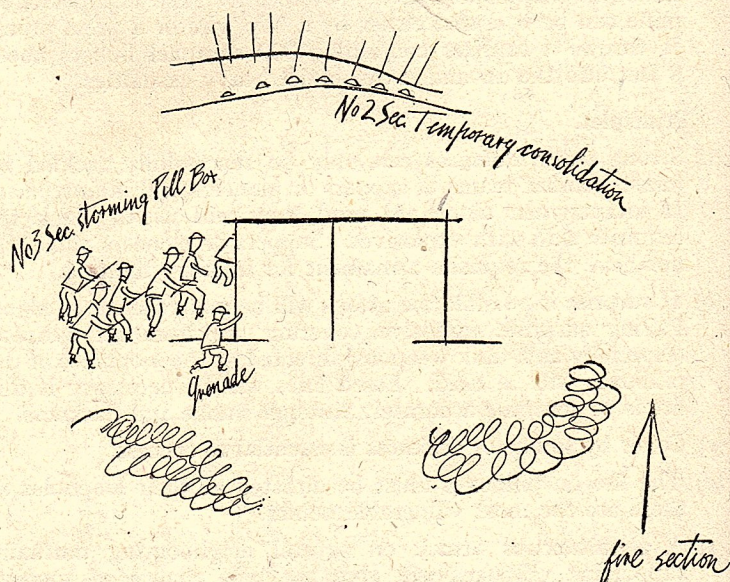 No 2 Sec. Temporary consolidation
No 3 Sec. storming Pill Box
Grenade
fire section